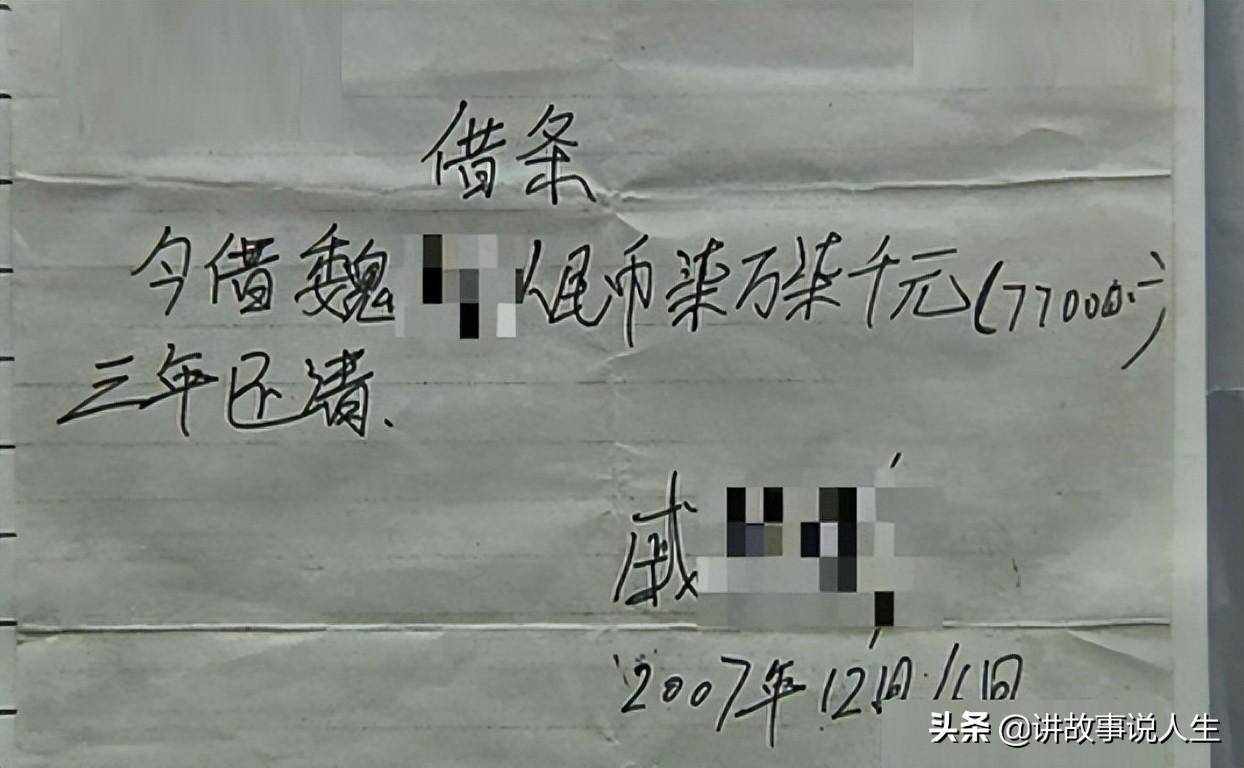 借条
今借魏 人民币柒万柒千元(77000.-)
三年还清.
戚
2007年12月11日
头条 @讲故事说人生